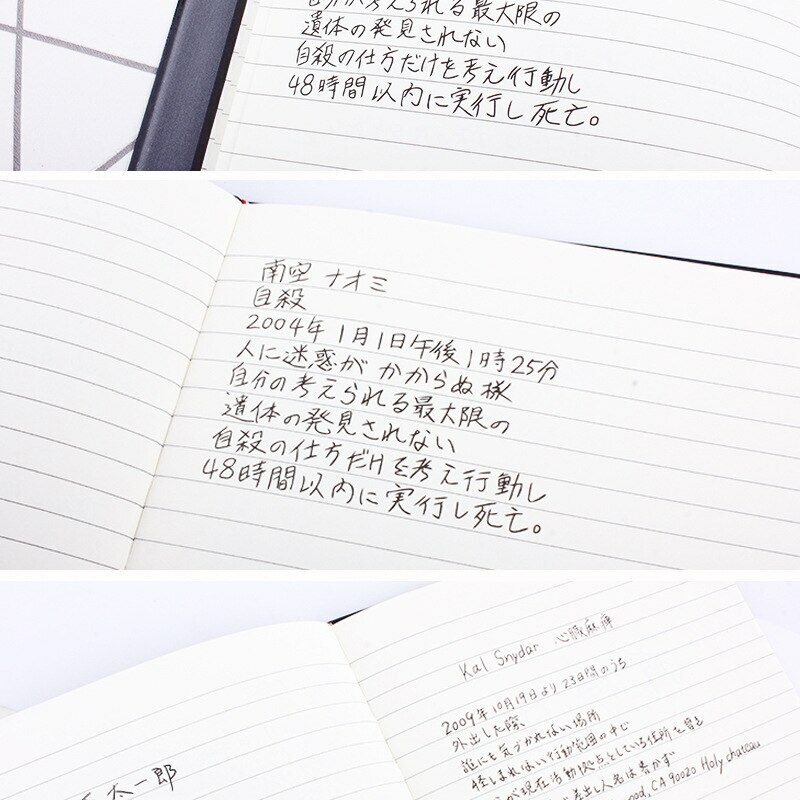 自分が考えられる最大限の
遺体の発見されない
自殺の仕方だけを考え行動し
48時間以内に実行し死亡。
南空 ナオミ
自殺
2004年 1月1日午後1時25分
人に迷惑が かからぬ様
自分の考えられる最大限の
遺体の発見されない
自殺の仕方だけを考え行動し
48時間以内に実行し死亡。
太一郎
Kal Snydar 心臓麻痺
2009年10月19日より23日間のうち
外出した際、
誰にも気づかれない場所
怪しまれない行動範囲の中で
が現在活動拠点としている住所を
差出人名は書かず
ood, CA 90020 Holy chateau